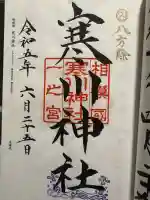 八方除
寒川神社
相模國
寒川神社
一之宮
令和五年
六月二十五日